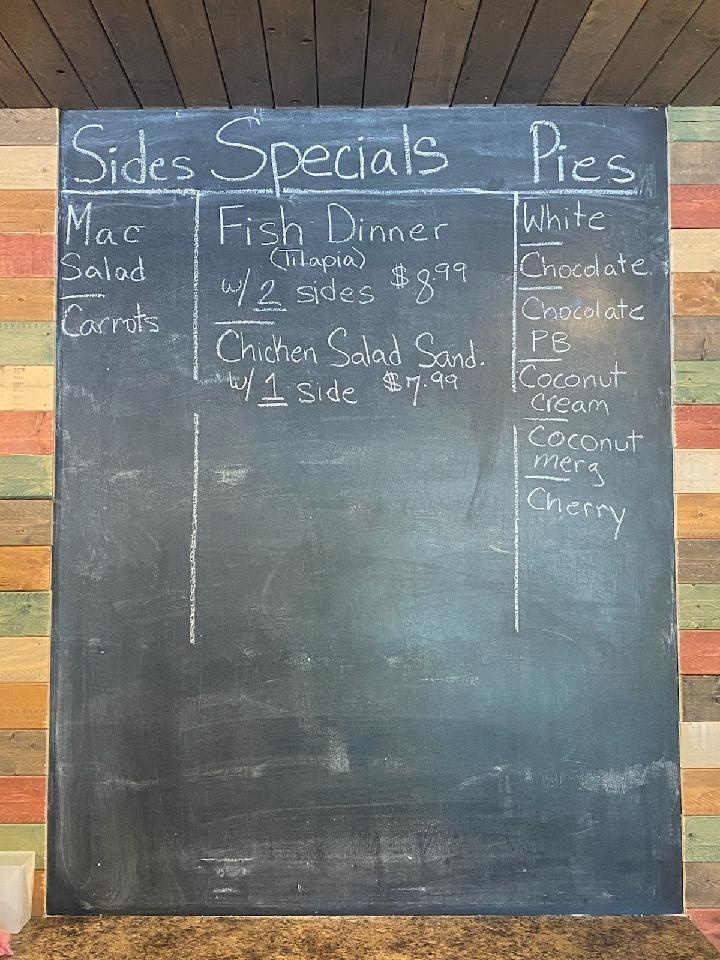 Sides
Mac
Salad
Carrots
Specials
Fish Dinner
(Tilapia)
w/ 2 sides $8.99
Chicken Salad Sand.
w/ 1 side $7.99
Pies
White
Chocolate
Chocolate
PB
Coconut
cream
Coconut
merg
Cherry